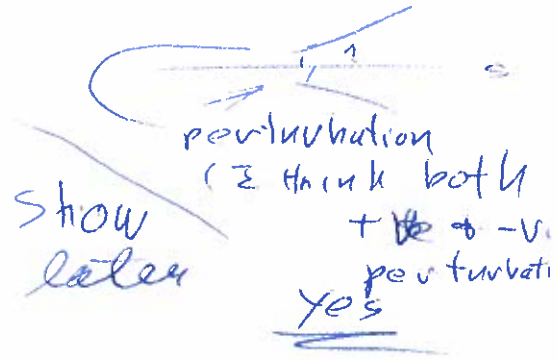 perturbation
(I think both
+ve & -v
perturbati
Show
later
Yes